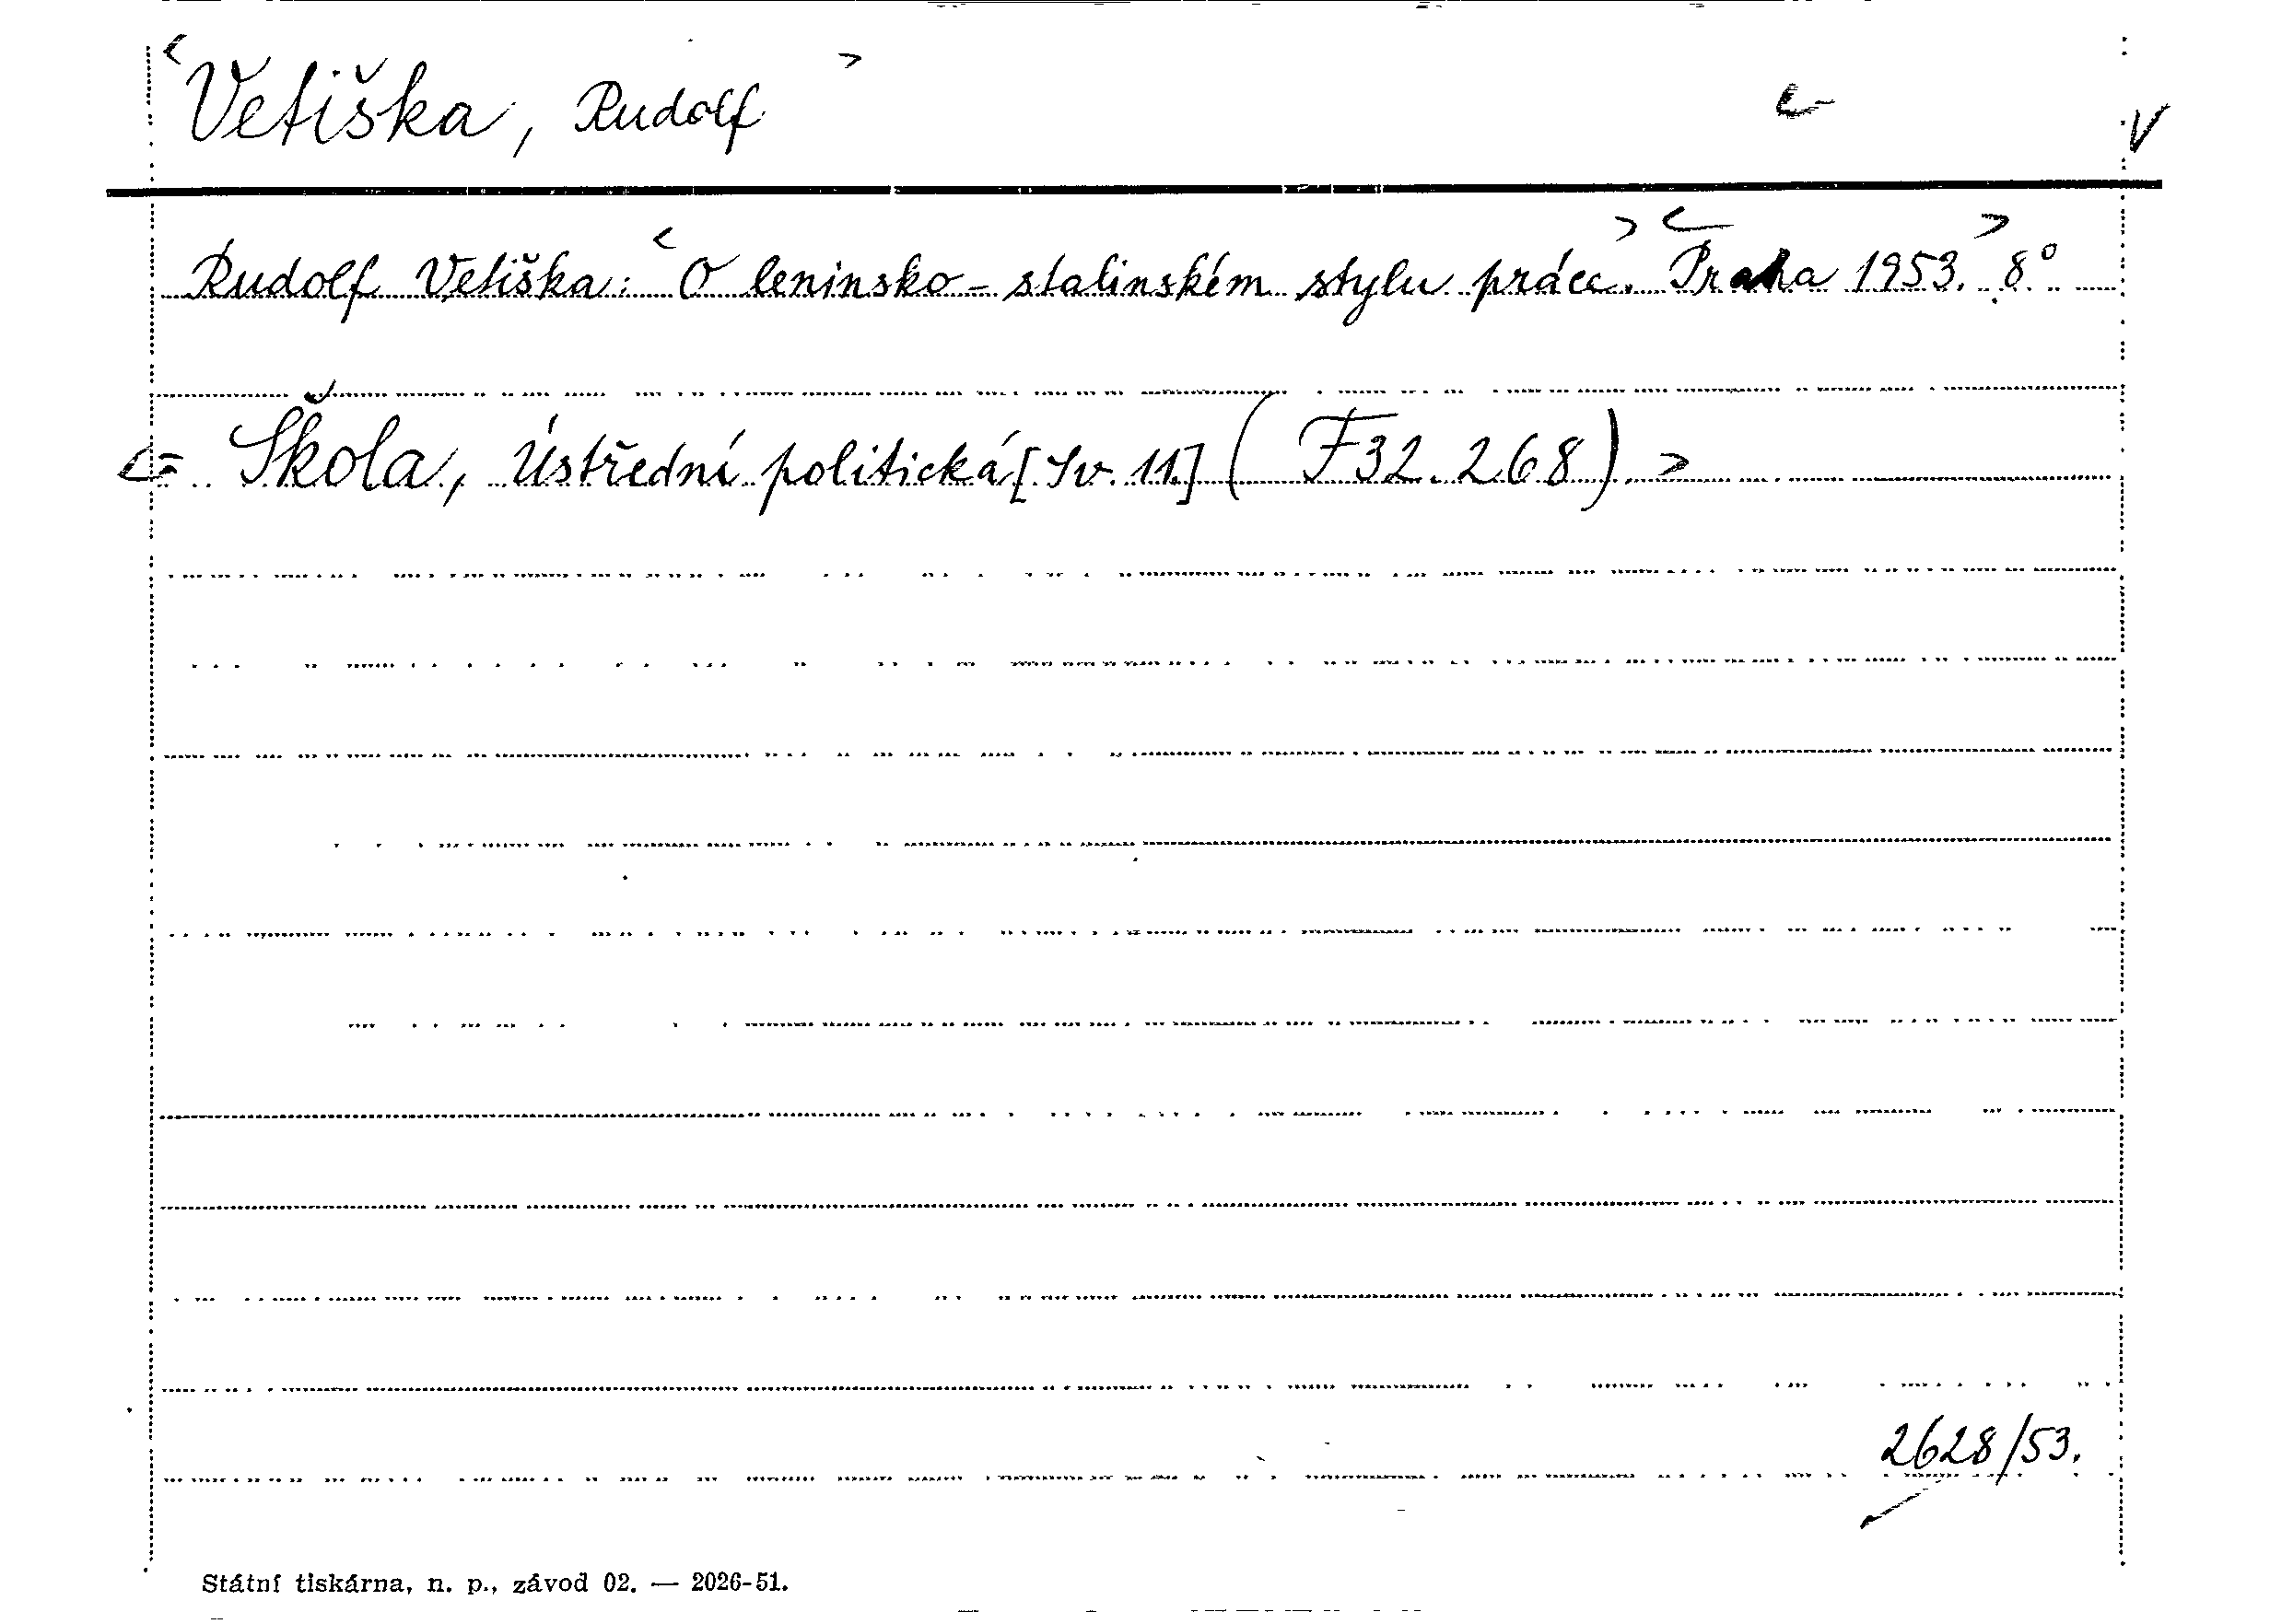 Vetiška, Rudolf
V
Rudolf Vetiška: O leninsko-stalinském stylu práce. Praha 1953. 8°
Škola, Ústřední politická [Sv. 11.] (F32.268).
2628/53.
Státní tiskárna, n. p., závod 02. — 2026-51.